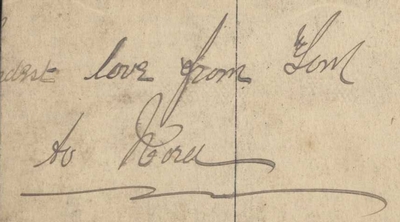 love from Tom
to Nora